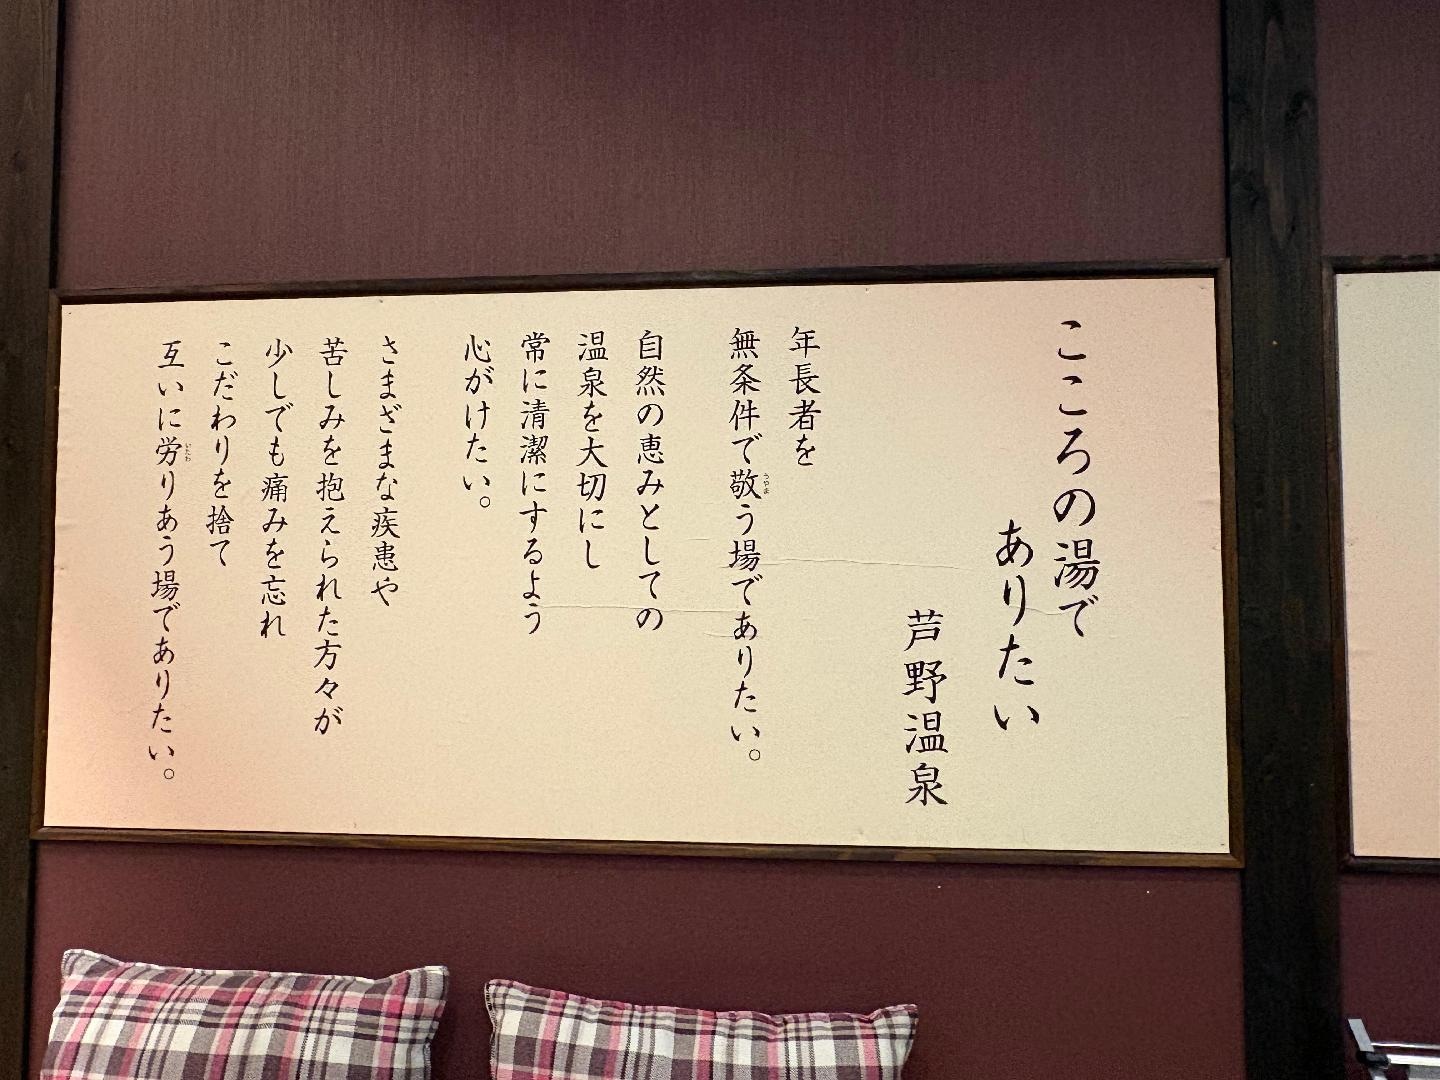 こころの湯で
ありたい
芦野温泉
年長者を
無条件で敬う場でありたい。
うやま
自然の恵みとしての
温泉を大切にし
常に清潔にするよう
心がけたい。
さまざまな疾患や
苦しみを抱えられた方々が
少しでも痛みを忘れ
こだわりを捨て
互いに労りあう場でありたい。
いたわ